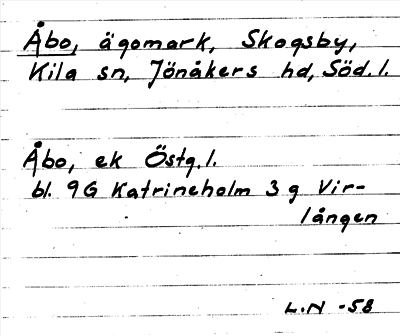 Åbo, ägomark, Skogsby,
Kila sn, Jönåkers hd, Söd.l.
Åbo, ek Östg.l.
bl. 9G Katrineholm 3 g Vir-
lången
L.N -58